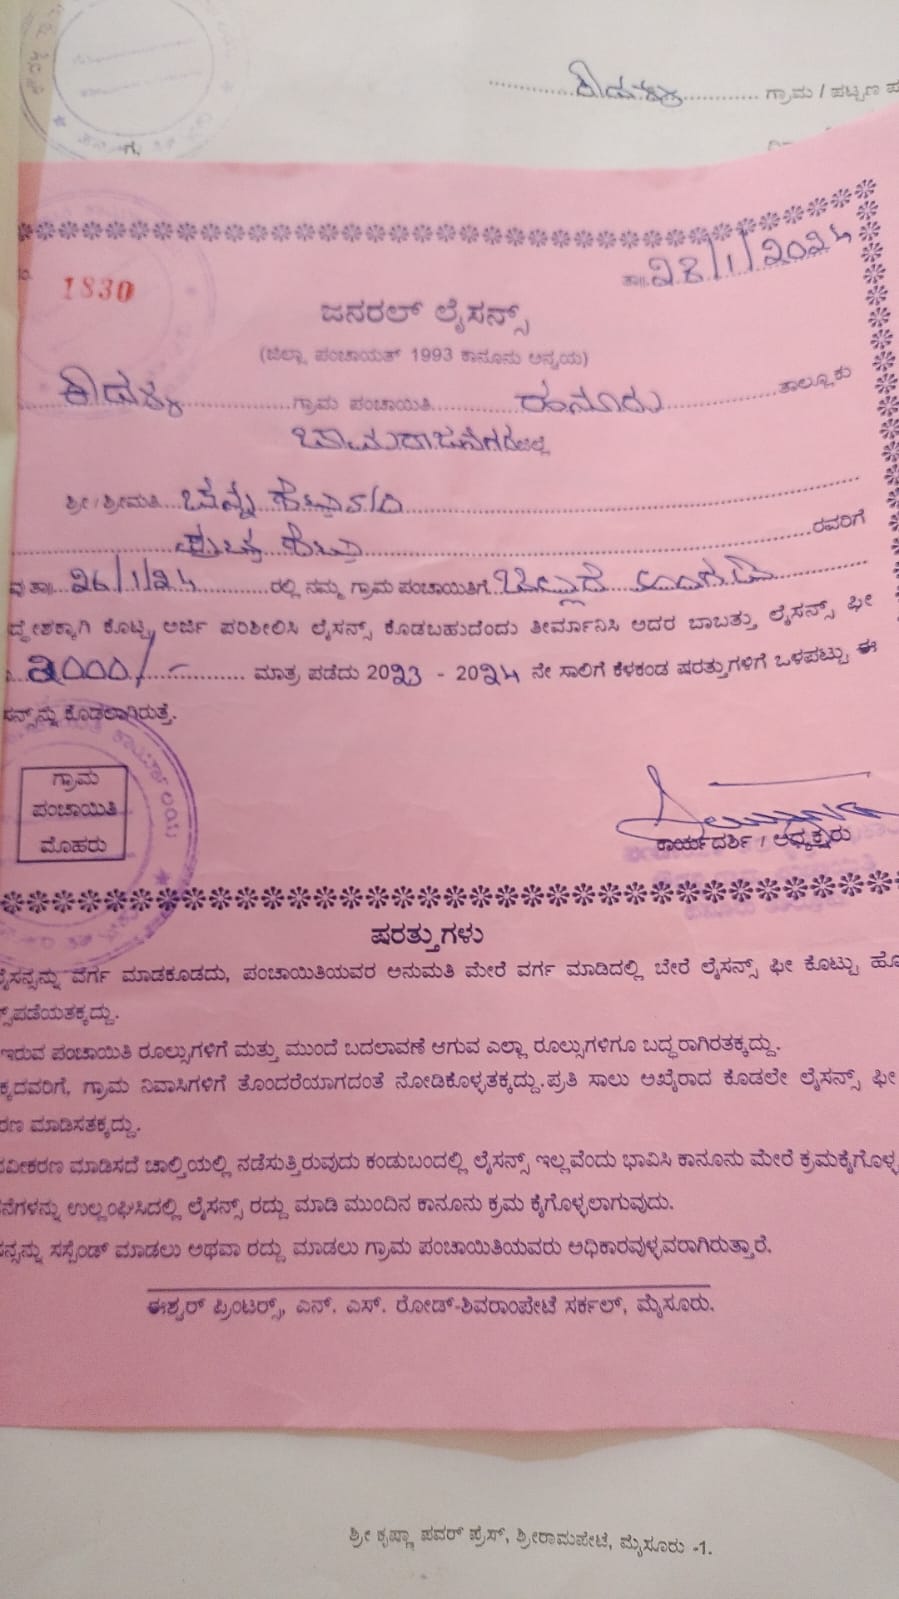 ಗ್ರಾಮ / ಪಟ್ಟಣ
1830
ತಾ॥ ೨೮/೧/೨೦೨೪
ಜನರಲ್ ಲೈಸನ್ಸ್
(ಜಿಲ್ಲಾ ಪಂಚಾಯತ್ 1993 ಕಾನೂನು ಅನ್ವಯ)
ಗ್ರಾಮ ಪಂಚಾಯಿತಿ ಹನೂರು ತಾಲ್ಲೂಕು
ಚಾಮರಾಜನಗರ ಜಿಲ್ಲೆ
ಶ್ರೀ/ಶ್ರೀಮತಿ
ರವರಿಗೆ
ತಾ॥ ೨೬/೧/೨೪ ರಲ್ಲಿ ನಮ್ಮ ಗ್ರಾಮ ಪಂಚಾಯಿತಿಗೆ ಚಿಲ್ಲರೆ ಅಂಗಡಿ
ದ್ದೇಶಕ್ಕಾಗಿ ಕೊಟ್ಟ ಅರ್ಜಿ ಪರಿಶೀಲಿಸಿ ಲೈಸನ್ಸ್ ಕೊಡಬಹುದೆಂದು ತೀರ್ಮಾನಿಸಿ ಅದರ ಬಾಬತ್ತು ಲೈಸನ್ಸ್ ಫೀ
೨೦೦೦/- ಮಾತ್ರ ಪಡೆದು 20೨೩ - 20೨೪ ನೇ ಸಾಲಿಗೆ ಕೆಳಕಂಡ ಷರತ್ತುಗಳಿಗೆ ಒಳಪಟ್ಟು ಈ
ಸನ್ಸ್‌ನ್ನು ಕೊಡಲಾಗಿರುತ್ತೆ.
ಗ್ರಾಮ
ಪಂಚಾಯಿತಿ
ಮೊಹರು
ಕಾರ್ಯದರ್ಶಿ / ಅಧ್ಯಕ್ಷರು
ಷರತ್ತುಗಳು
ಲೈಸನ್ಸನ್ನು ವರ್ಗ ಮಾಡಕೂಡದು, ಪಂಚಾಯಿತಿಯವರ ಅನುಮತಿ ಮೇರೆ ವರ್ಗ ಮಾಡಿದಲ್ಲಿ ಬೇರೆ ಲೈಸನ್ಸ್ ಫೀ ಕೊಟ್ಟು ಹೊ
ಪಡೆಯತಕ್ಕದ್ದು.
ಇರುವ ಪಂಚಾಯಿತಿ ರೂಲ್ಸುಗಳಿಗೆ ಮತ್ತು ಮುಂದೆ ಬದಲಾವಣೆ ಆಗುವ ಎಲ್ಲಾ ರೂಲ್ಸುಗಳಿಗೂ ಬದ್ಧರಾಗಿರತಕ್ಕದ್ದು.
ಕ್ಕದವರಿಗೆ, ಗ್ರಾಮ ನಿವಾಸಿಗಳಿಗೆ ತೊಂದರೆಯಾಗದಂತೆ ನೋಡಿಕೊಳ್ಳತಕ್ಕದ್ದು.ಪ್ರತಿ ಸಾಲು ಅಖೈರಾದ ಕೂಡಲೇ ಲೈಸನ್ಸ್ ಫೀ
ರಣ ಮಾಡಿಸತಕ್ಕದ್ದು.
ನವೀಕರಣ ಮಾಡಿಸದೆ ಚಾಲ್ತಿಯಲ್ಲಿ ನಡೆಸುತ್ತಿರುವುದು ಕಂಡುಬಂದಲ್ಲಿ ಲೈಸನ್ಸ್ ಇಲ್ಲವೆಂದು ಭಾವಿಸಿ ಕಾನೂನು ಮೇರೆ ಕ್ರಮಕೈಗೊಳ್ಳ
ನೆಗಳನ್ನು ಉಲ್ಲಂಘಿಸಿದಲ್ಲಿ ಲೈಸನ್ಸ್ ರದ್ದು ಮಾಡಿ ಮುಂದಿನ ಕಾನೂನು ಕ್ರಮ ಕೈಗೊಳ್ಳಲಾಗುವುದು.
ಸನ್ಸನ್ನು ಸಸ್ಪೆಂಡ್ ಮಾಡಲು ಅಥವಾ ರದ್ದು ಮಾಡಲು ಗ್ರಾಮ ಪಂಚಾಯಿತಿಯವರು ಅಧಿಕಾರವುಳ್ಳವರಾಗಿರುತ್ತಾರೆ.
ಈಶ್ವರ್ ಪ್ರಿಂಟರ್ಸ್, ಎನ್. ಎಸ್. ರೋಡ್-ಶಿವರಾಂಪೇಟೆ ಸರ್ಕಲ್, ಮೈಸೂರು.
ಶ್ರೀ ಕೃಷ್ಣಾ ಪವರ್ ಪ್ರೆಸ್, ಶ್ರೀರಾಮಪೇಟೆ, ಮೈಸೂರು -1.